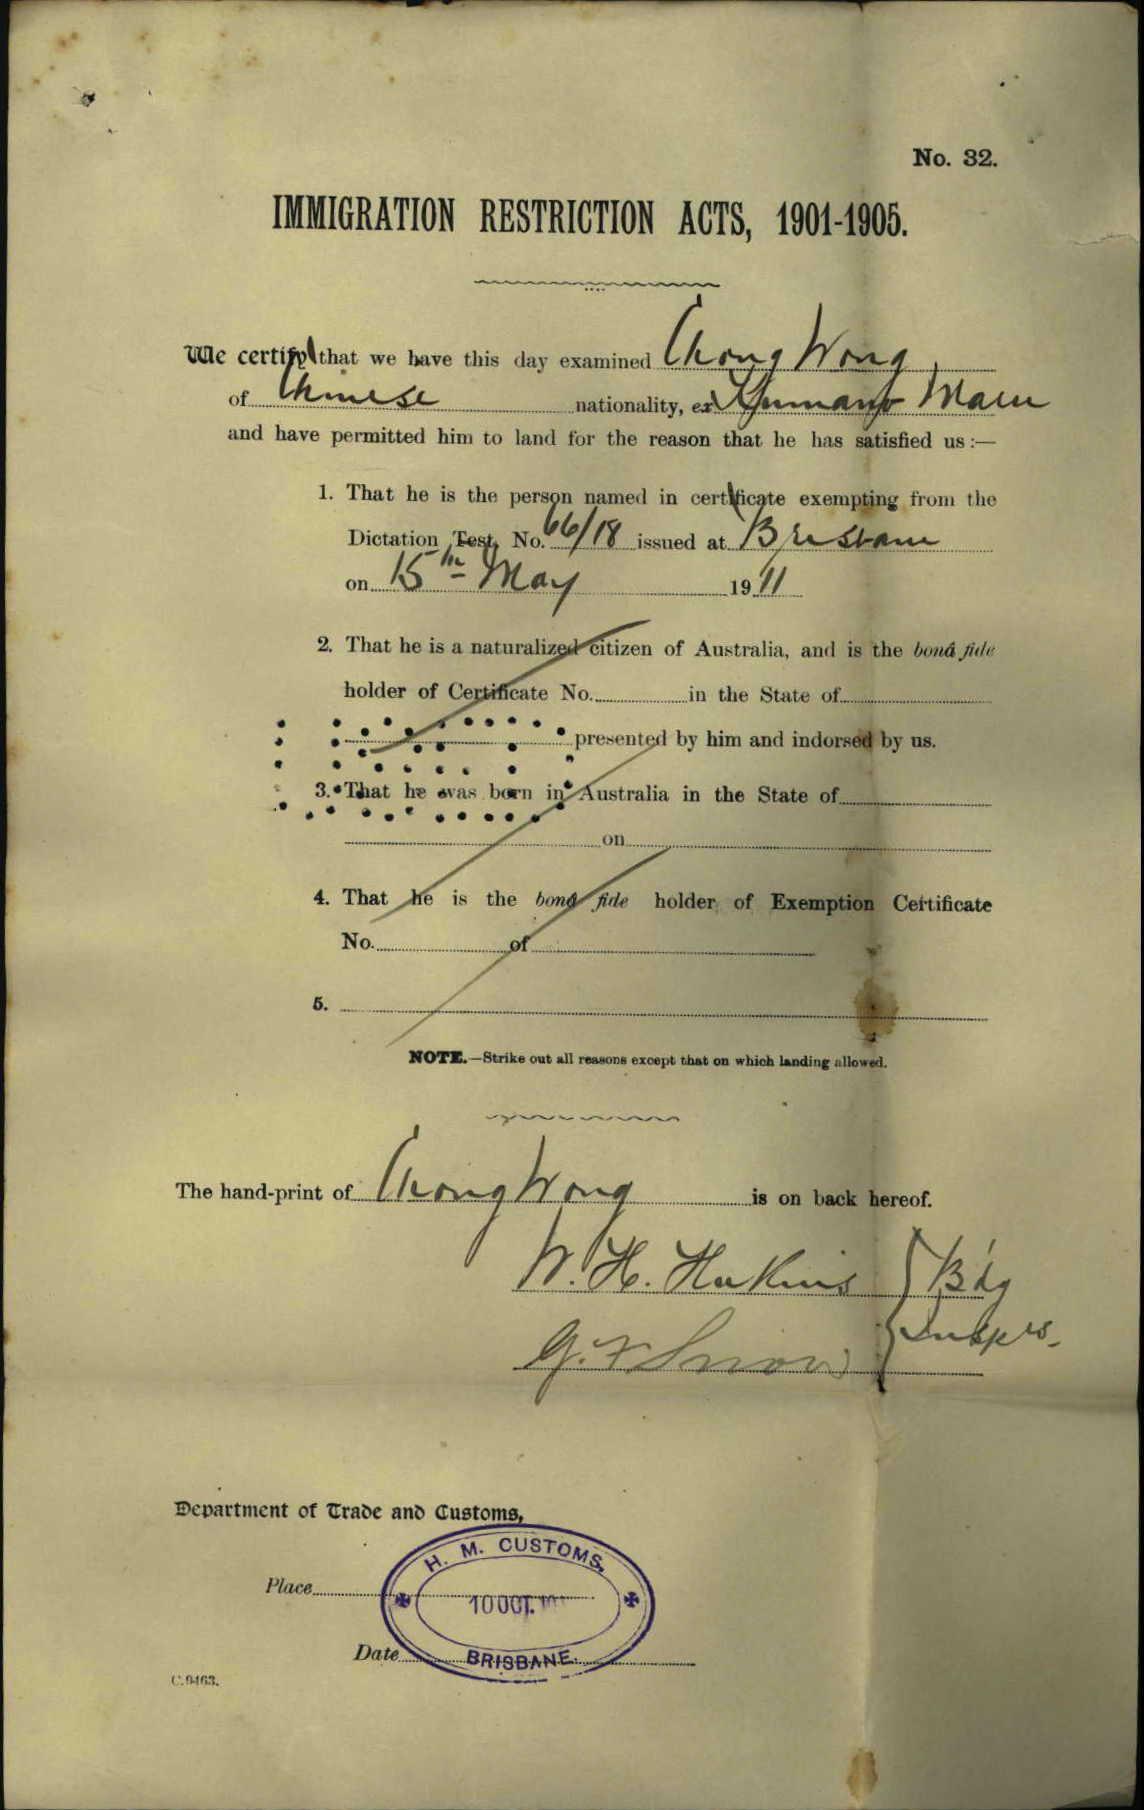 No. 32.
IMMIGRATION RESTRICTION ACTS, 1901-1905.
We certify that we have this day examined Chong Wong
of Chinese nationality, ex Kumano Maru
and have permitted him to land for the reason that he has satisfied us :—
1. That he is the person named in certificate exempting from the
Dictation Test, No. 66/18 issued at Brisbane
on 15th May 1911
2. That he is a naturalized citizen of Australia, and is the bonâ fide
holder of Certificate No. in the State of
presented by him and indorsed by us.
3. That he was born in Australia in the State of
on
4. That he is the bonâ fide holder of Exemption Certificate
No. of
5.
NOTE.—Strike out all reasons except that on which landing allowed.
The hand-print of Chong Wong is on back hereof.
W. H. B'dg
G. F. Snow Insprs.
Department of Trade and Customs,
H. M. CUSTOMS,
Place
10 OCT.
Date
BRISBANE.
C.9463.